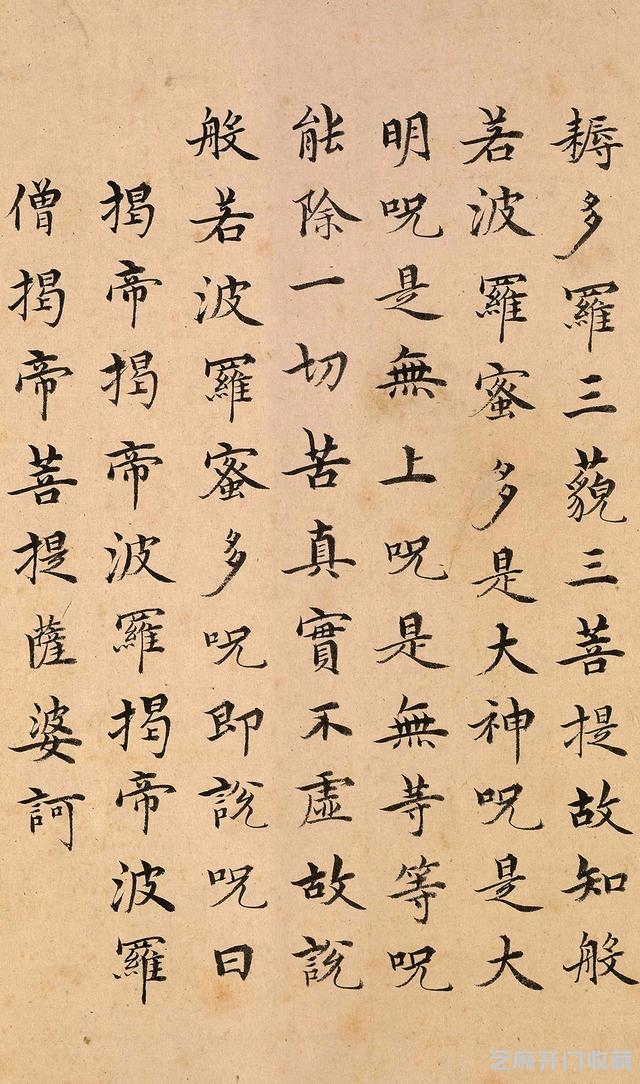 耨多羅三藐三菩提故知般
若波羅蜜多是大神呪是大
明呪是無上呪是無等等呪
能除一切苦真實不虛故說
般若波羅蜜多呪即說呪曰
揭帝揭帝波羅揭帝波羅
僧揭帝菩提薩婆訶
芝麻开门收藏